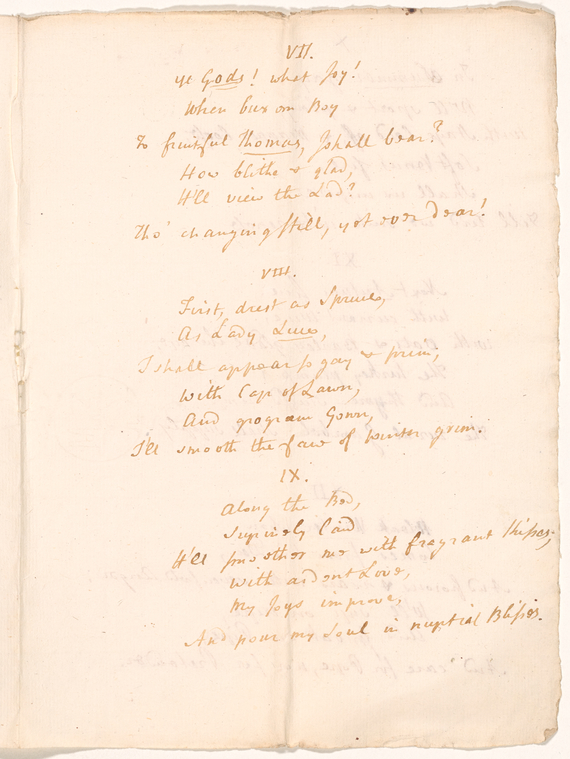 VII.
ye Gods! what Joy!
When buxom Boy
To fruitful Thomas, I shall bear?
How blithe & glad,
He'll view the Lad?
Tho' changing still, yet ever Dear!
VIII.
First, drest as Spruce,
As Lady Luce,
I shall appear so gay & prim,
With Cap of Lawn,
And grogram Gown,
I'll smooth the face of winter grim.
IX.
Along the Bed,
Supinely laid
He'll smother me with fragrant Kisses;
With ardent Love,
My Joys improve,
And pour my Soul in nuptial Blisses.